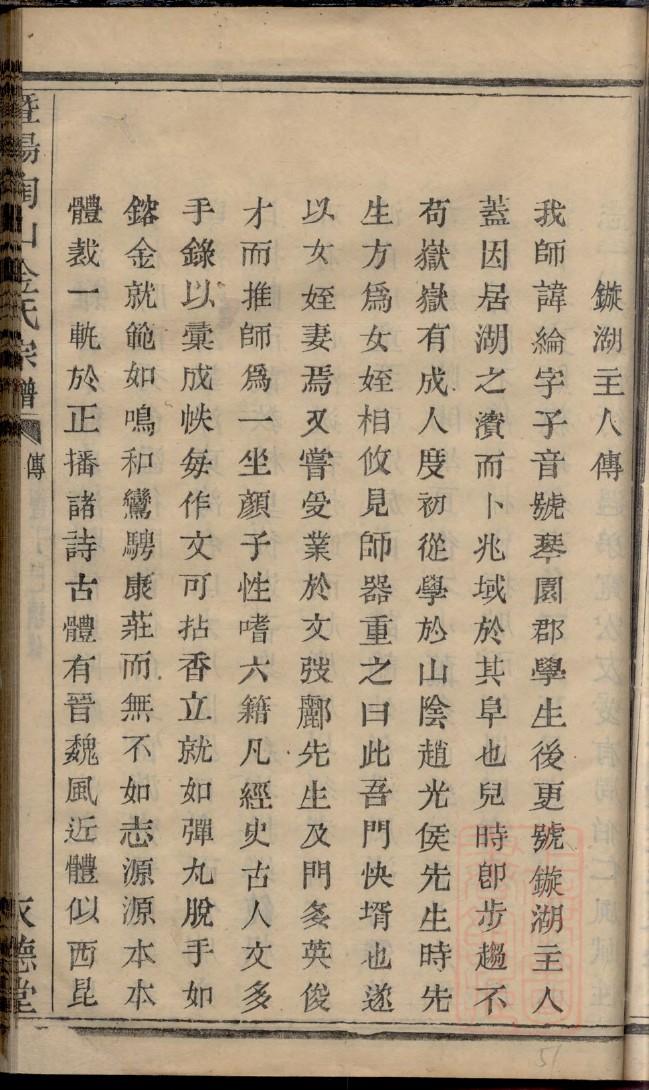 鏇湖主人傳
我師諱綸字子音號琴園郡學生後更號鏇湖主人
蓋因居湖之濱而卜兆域於其阜也兒時卽步趨不
苟嶽嶽有成人度初從學於山陰趙光侯先生時先
生方爲女姪相攸見師器重之曰此吾門快壻也遂
以女姪妻焉又嘗受業於文弢酈先生及門多英俊
才而推師爲一坐顏子性嗜六籍凡經史古人文多
手錄以彙成帙每作文可拈香立就如彈丸脫手如
鎔金就範如鳴和鸞騁康莊而無不如志源源本本
體裁一軌於正播諸詩古體有晉魏風近體似西昆
暨陽陶山金氏宗譜
傳
德堂